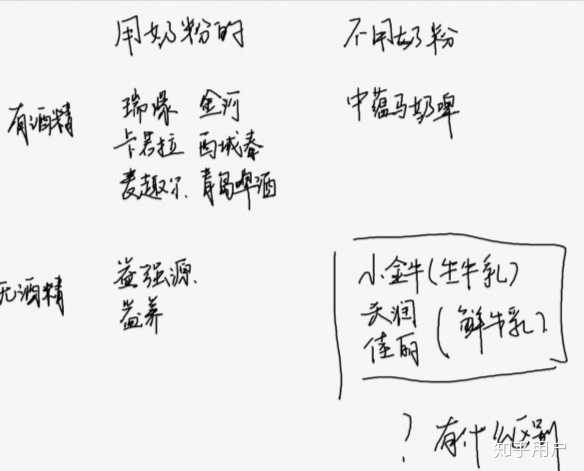 用奶粉的 不用奶粉
有酒精 瑞缘 金河 中蕴马奶啤
卡君拉 西域春
麦趣尔 青岛啤酒
无酒精 益强源
益养
小金牛(生牛乳)
天润
佳丽 (鲜牛乳)
? 有什么区别
知乎用户